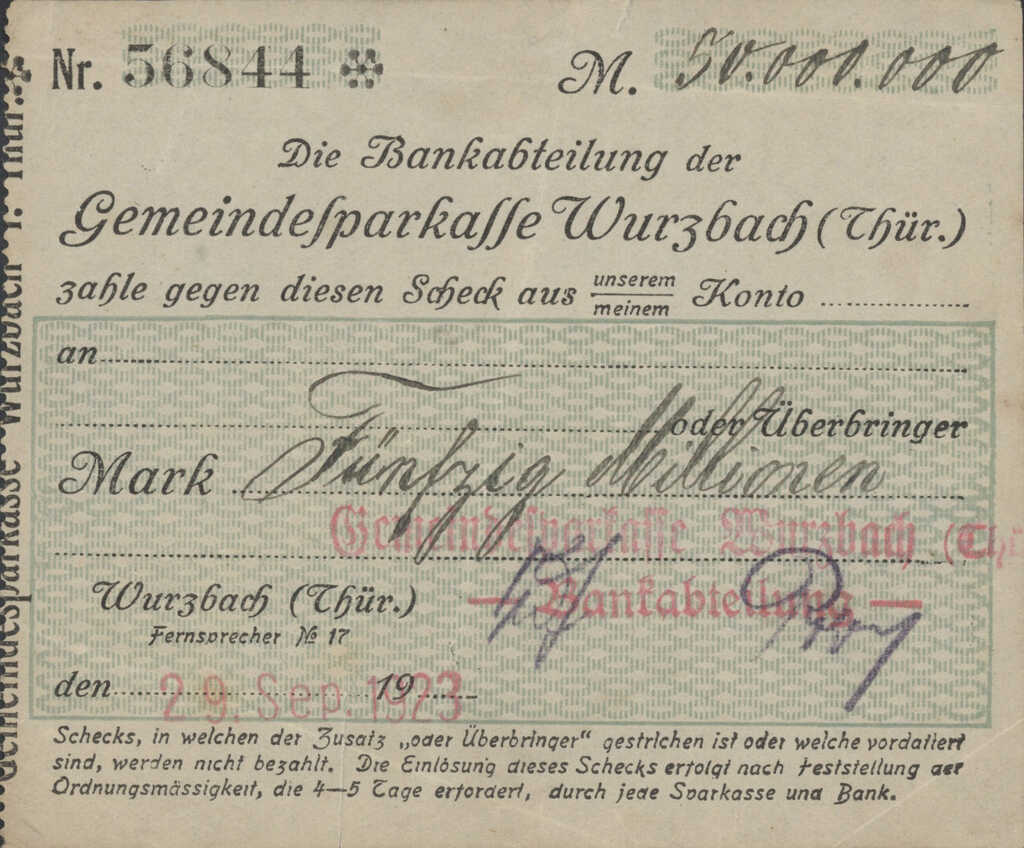 Nr. 56844
M. 50.000.000
Die Bankabteilung der
Gemeindesparkasse Wurzbach (Thür.)
zahle gegen diesen Scheck aus unserem
meinem Konto
an
oder Überbringer
Mark Fünfzig Millionen
Gemeindesparkasse Wurzbach (Th
Wurzbach (Thür.)
— Bankabteilung —
Fernsprecher № 17
den 29. Sep. 1923 19
Schecks, in welchen der Zusatz „oder Überbringer“ gestrichen ist oder welche vordatiert
sind, werden nicht bezahlt. Die Einlösung dieses Schecks erfolgt nach Feststellung der
Ordnungsmässigkeit, die 4—5 Tage erfordert, durch jede Sparkasse und Bank.
Gemeindesparkasse Wurzbach i. Thür.